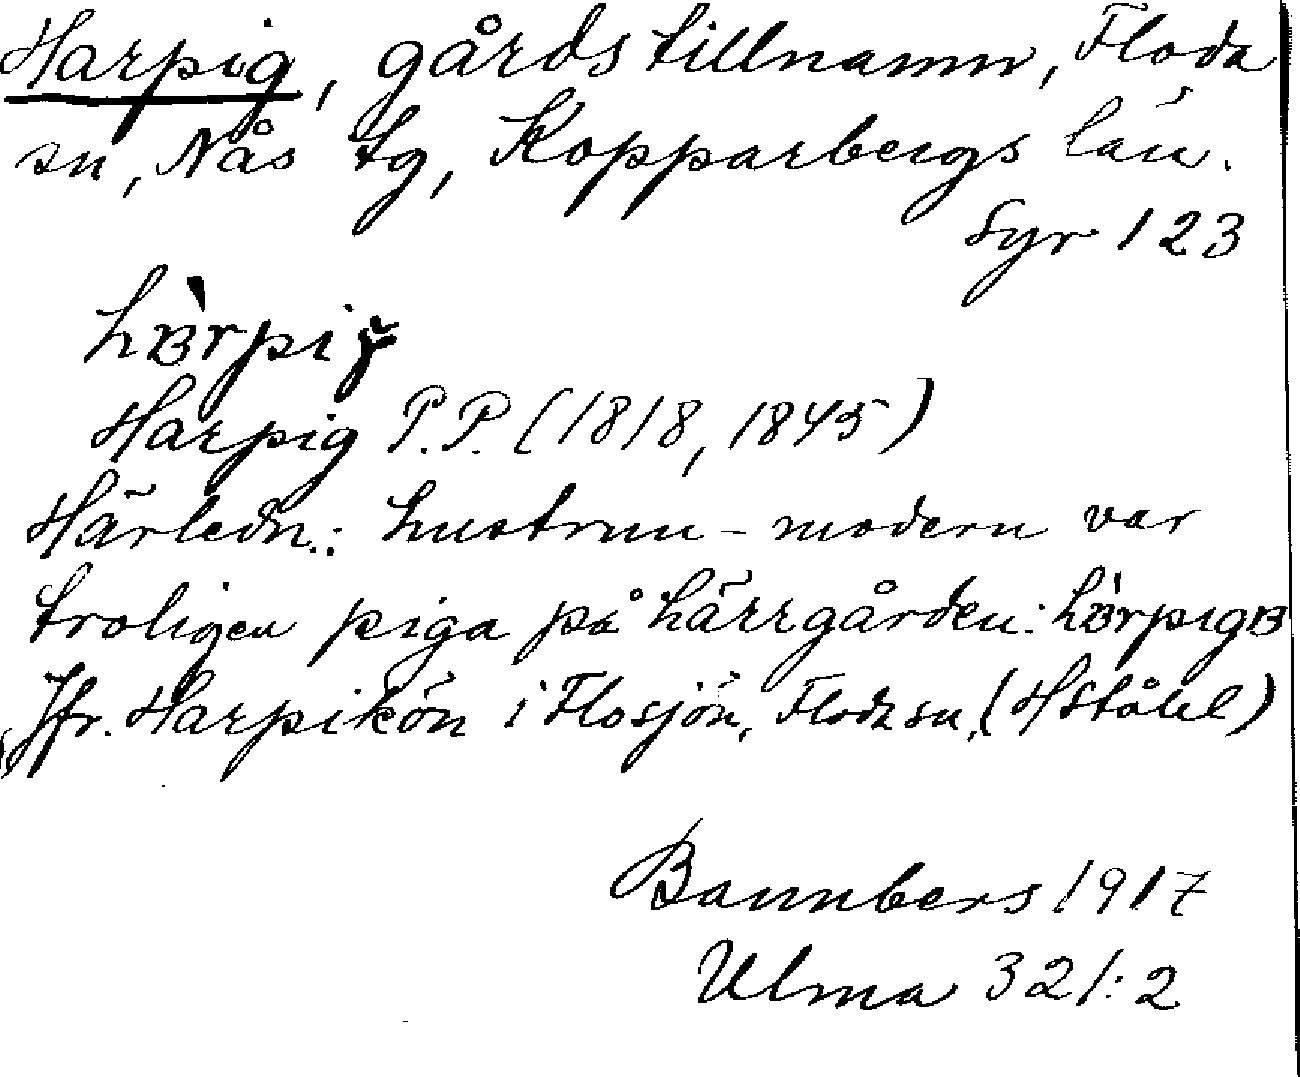 Harpig, gårdstillnamn, Floda
sn, Nås tg, Kopparbergs län.
Syr 123
Harpig P.P. (1818, 1845)
Härledn.: hustrun - modern var
troligen piga på härrgården:
Jfr. Harpikön i Flosjön, Floda sn, (H Ståhl)
Bannbers 1917
Ulma 321:2